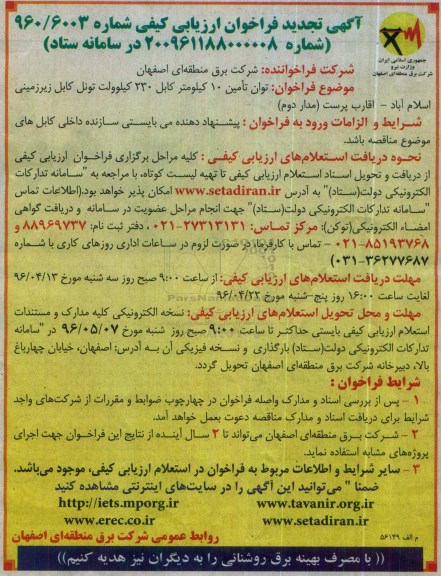 آگهی تجدید فراخوان ارزیابی کیفی شماره ۹۶۰/۶۰۰۳
(شماره ۲۰۰۹۶۱۱۸۸۰۰۰۰۰۸ در سامانه ستاد)
جمهوری اسلامی ایران
وزارت نیرو
شرکت برق منطقه‌ای اصفهان
شرکت فراخواننده: شرکت برق منطقه‌ای اصفهان
موضوع فراخوان: توان تأمین ۱۰ کیلومتر کابل ۲۳۰ کیلوولت تونل کابل زیرزمینی
اسلام آباد - اقارب پرست (مدار دوم)
شرایط و الزامات ورود به فراخوان : پیشنهاد دهنده می بایستی سازنده داخلی کابل های
موضوع مناقصه باشد.
نحوه دریافت استعلام‌های ارزیابی کیفی : کلیه مراحل برگزاری فراخوان ارزیابی کیفی
از دریافت و تحویل اسناد استعلام ارزیابی کیفی تا تهیه لیست کوتاه، با مراجعه به "سامانه تدارکات
الکترونیکی دولت(ستاد)" به آدرس www.setadiran.ir امکان پذیر خواهد بود.(اطلاعات تماس
"سامانه تدارکات الکترونیکی دولت(ستاد)" جهت انجام مراحل عضویت در سامانه و دریافت گواهی
امضاء الکترونیکی(توکن): مرکز تماس: ۲۷۳۱۳۱۳۱-۰۲۱، دفتر ثبت نام: ۸۸۹۶۹۷۳۷ و
۸۵۱۹۳۷۶۸-۰۲۱ - تماس با کارفرما، در صورت لزوم در ساعات اداری روزهای کاری با شماره
۳۶۲۷۷۶۸۷-۰۳۱)
مهلت دریافت استعلام‌های ارزیابی کیفی: از ساعت ۹:۰۰ صبح روز سه شنبه مورخ ۹۶/۰۴/۱۳
لغایت ساعت ۱۶:۰۰ روز پنج شنبه مورخ ۹۶/۰۴/۲۲
مهلت و محل تحویل استعلام‌های ارزیابی کیفی: نسخه الکترونیکی کلیه مدارک و مستندات
استعلام ارزیابی کیفی بایستی حداکثر تا ساعت ۹:۰۰ صبح روز شنبه مورخ ۹۶/۰۵/۰۷ در "سامانه
تدارکات الکترونیکی دولت(ستاد) بارگذاری و نسخه فیزیکی آن به آدرس: اصفهان، خیابان چهارباغ
بالا، دبیرخانه شرکت برق منطقه‌ای اصفهان تحویل گردد.
شرایط فراخوان :
۱ - پس از بررسی اسناد و مدارک واصله فراخوان در چهارچوب ضوابط و مقررات از شرکت‌های واجد
شرایط برای دریافت اسناد و مدارک مناقصه دعوت بعمل خواهد آمد.
۲ - شرکت برق منطقه‌ای اصفهان می‌تواند تا ۲ سال آینده از نتایج این فراخوان جهت اجرای
پروژه‌های مشابه استفاده نماید.
۳ - سایر شرایط و اطلاعات مربوط به فراخوان در استعلام ارزیابی کیفی، موجود می‌باشد.
ضمنا " می‌توانید این آگهی را در سایت‌های اینترنتی مشاهده کنید
http://iets.mporg.ir www.tavanir.org.ir
www.erec.co.ir www.setadiran.ir
م الف ۵۶۱۴۹
روابط عمومی شرکت برق منطقه‌ای اصفهان
(( با مصرف بهینه برق روشنائی را به دیگران نیز هدیه کنیم ))